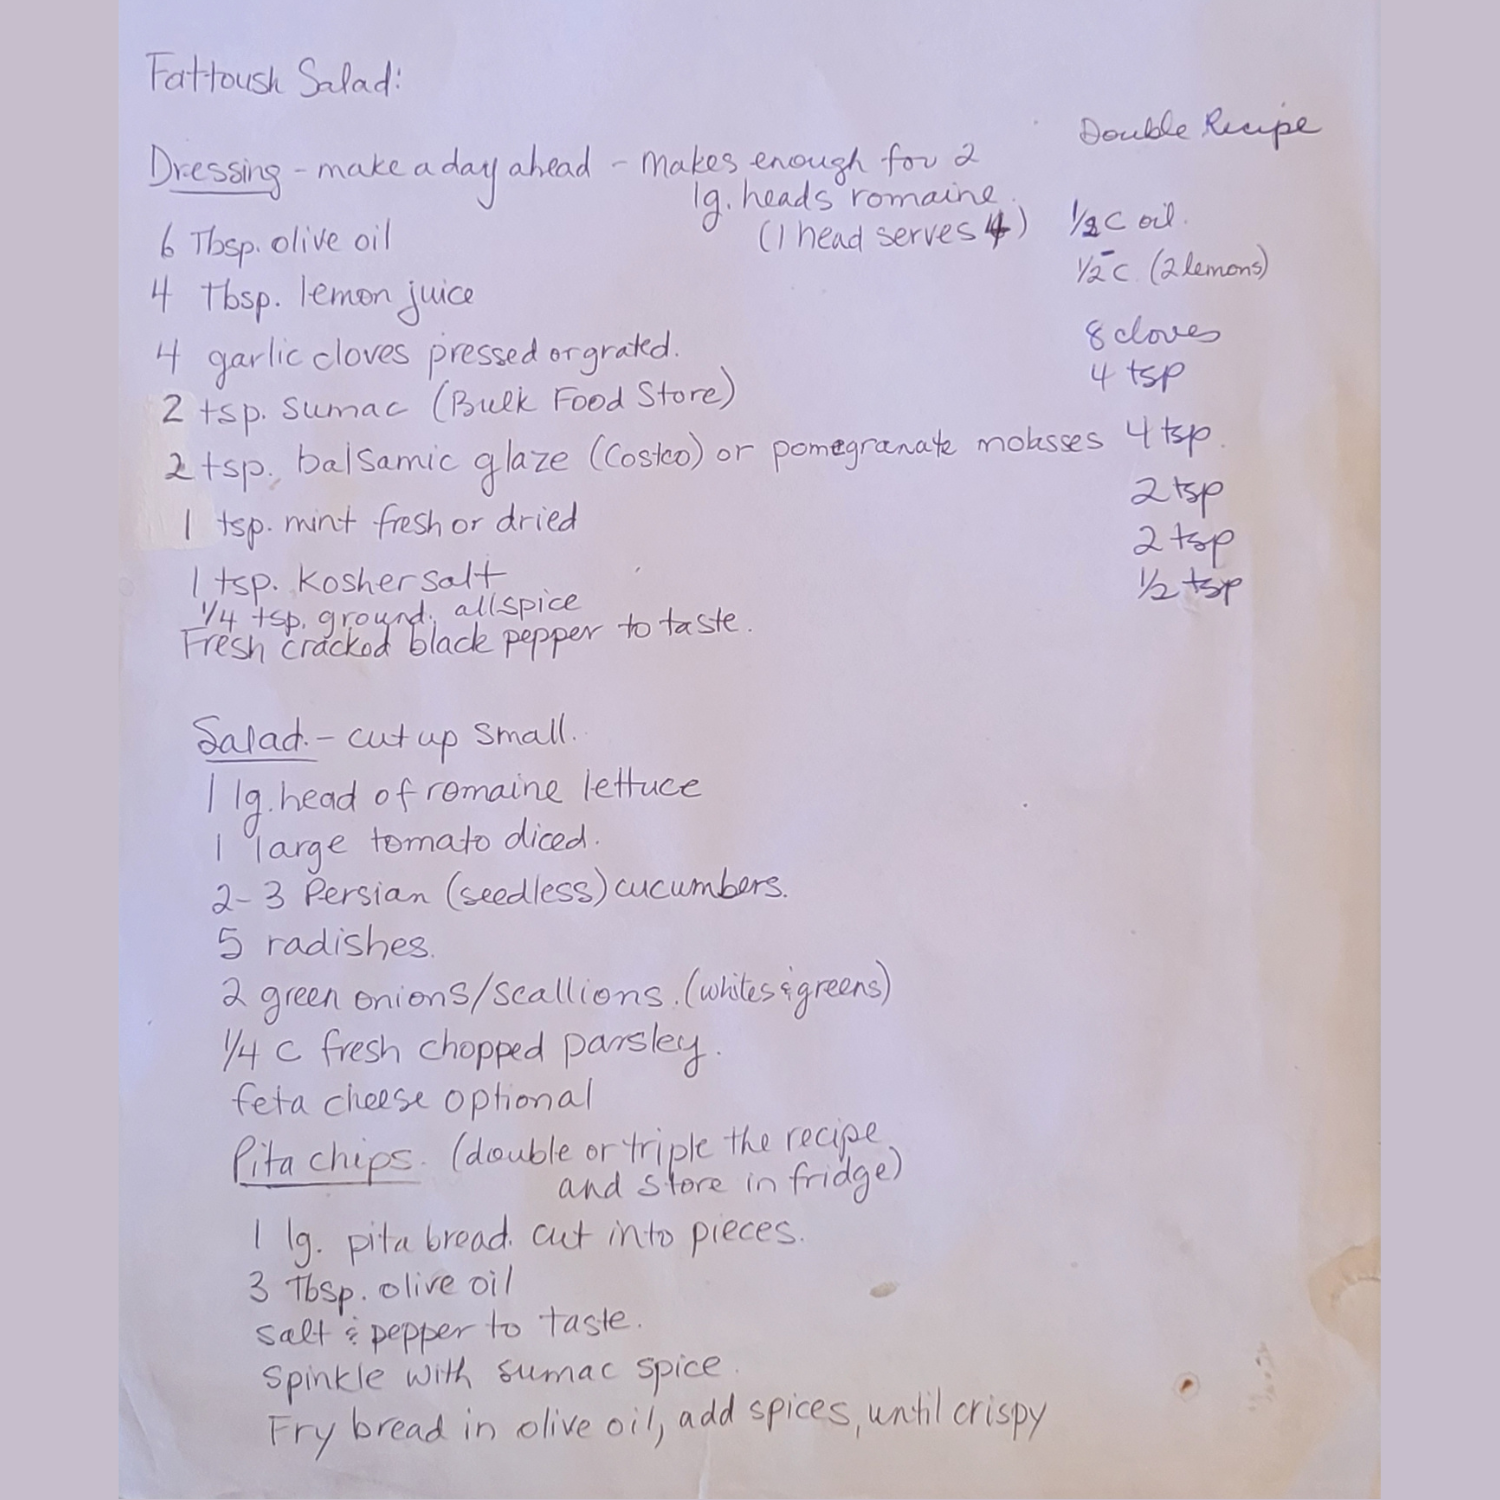 Fattoush Salad:
Double Recipe
Dressing - make a day ahead - makes enough for 2
lg. heads romaine.
(1 head serves 4)
6 Tbsp. olive oil
1/2 c oil.
4 Tbsp. lemon juice
1/2 - c (2 lemons)
4 garlic cloves pressed or grated.
8 cloves
2 tsp. sumac (Bulk Food Store)
4 tsp
2 tsp. balsamic glaze (Costco) or pomegranate molasses 4 tsp.
1 tsp. mint fresh or dried
2 tsp
1 tsp. Kosher salt
2 tsp
1/4 tsp. ground. allspice
1/2 tsp
Fresh cracked black pepper to taste.
Salad. - cut up small.
1 lg. head of romaine lettuce
1 large tomato diced.
2-3 Persian (seedless) cucumbers.
5 radishes.
2 green onions/scallions. (whites & greens)
1/4 C fresh chopped parsley.
feta cheese optional
Pita chips. (double or triple the recipe
and store in fridge)
1 lg. pita bread. cut into pieces.
3 Tbsp. olive oil
salt & pepper to taste.
Spinkle with sumac spice.
Fry bread in olive oil, add spices, until crispy